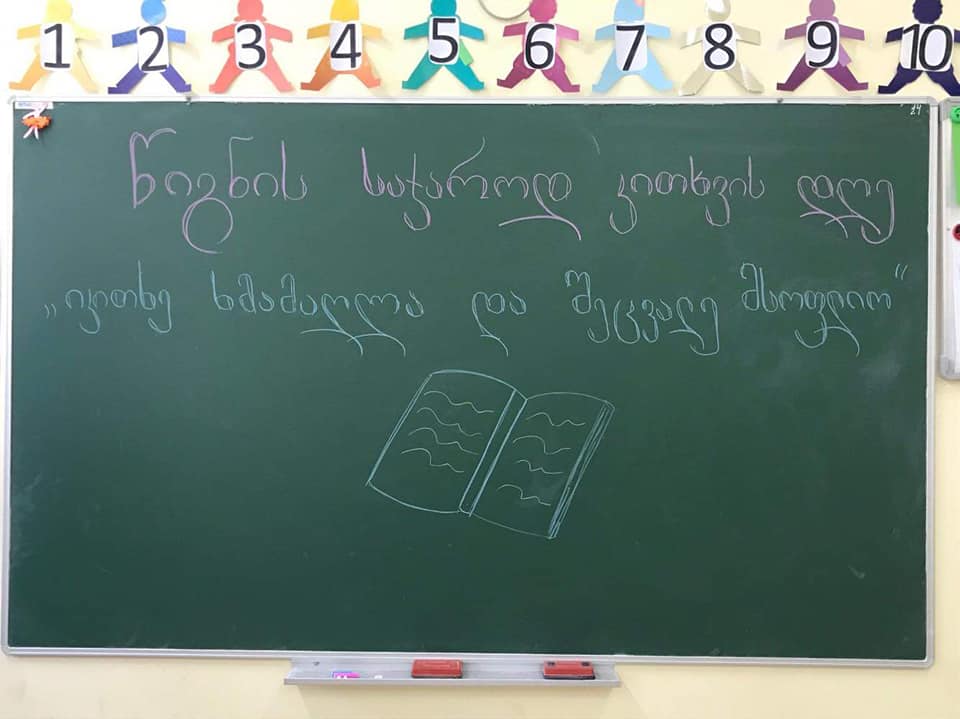 1 2 3 4 5 6 7 8 9 10
24
წიგნის საჯაროდ კითხვის დღე
„იკითხე ხმამაღლა და შეცვალე მსოფლიო“